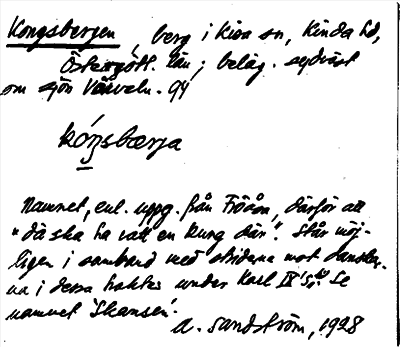 Kongsbergen, berg i Kisa sn, Kinda hd,
Östergötl. län; beläg. sydväst
om sjön Värveln. 94
kóngsbærja
Namnet, enl. uppg. från Fröön, därför att
"dä ska ha vatt en kung där". Står möj-
ligen i samband med striderna mot danskar-
na i dessa trakter under Karl IX's tid. Se
namnet 'Skansen'.
A. Sandström, 1928